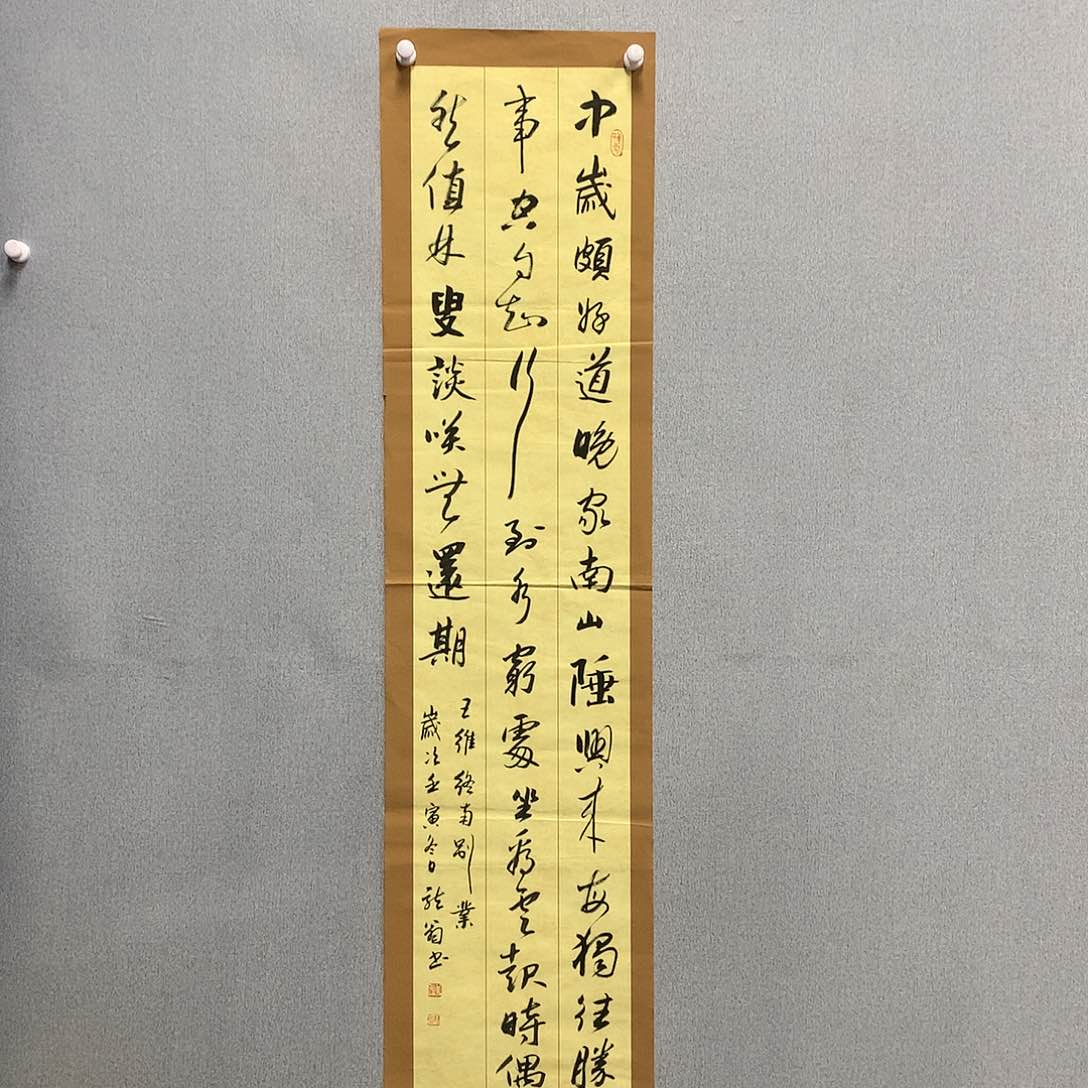 中歲頗好道晚家南山陲興来每獨往勝
事空自知行到水窮處坐看雲起時偶
然值林叟談咲無還期
王維終南別業
歲次壬寅冬日翁书